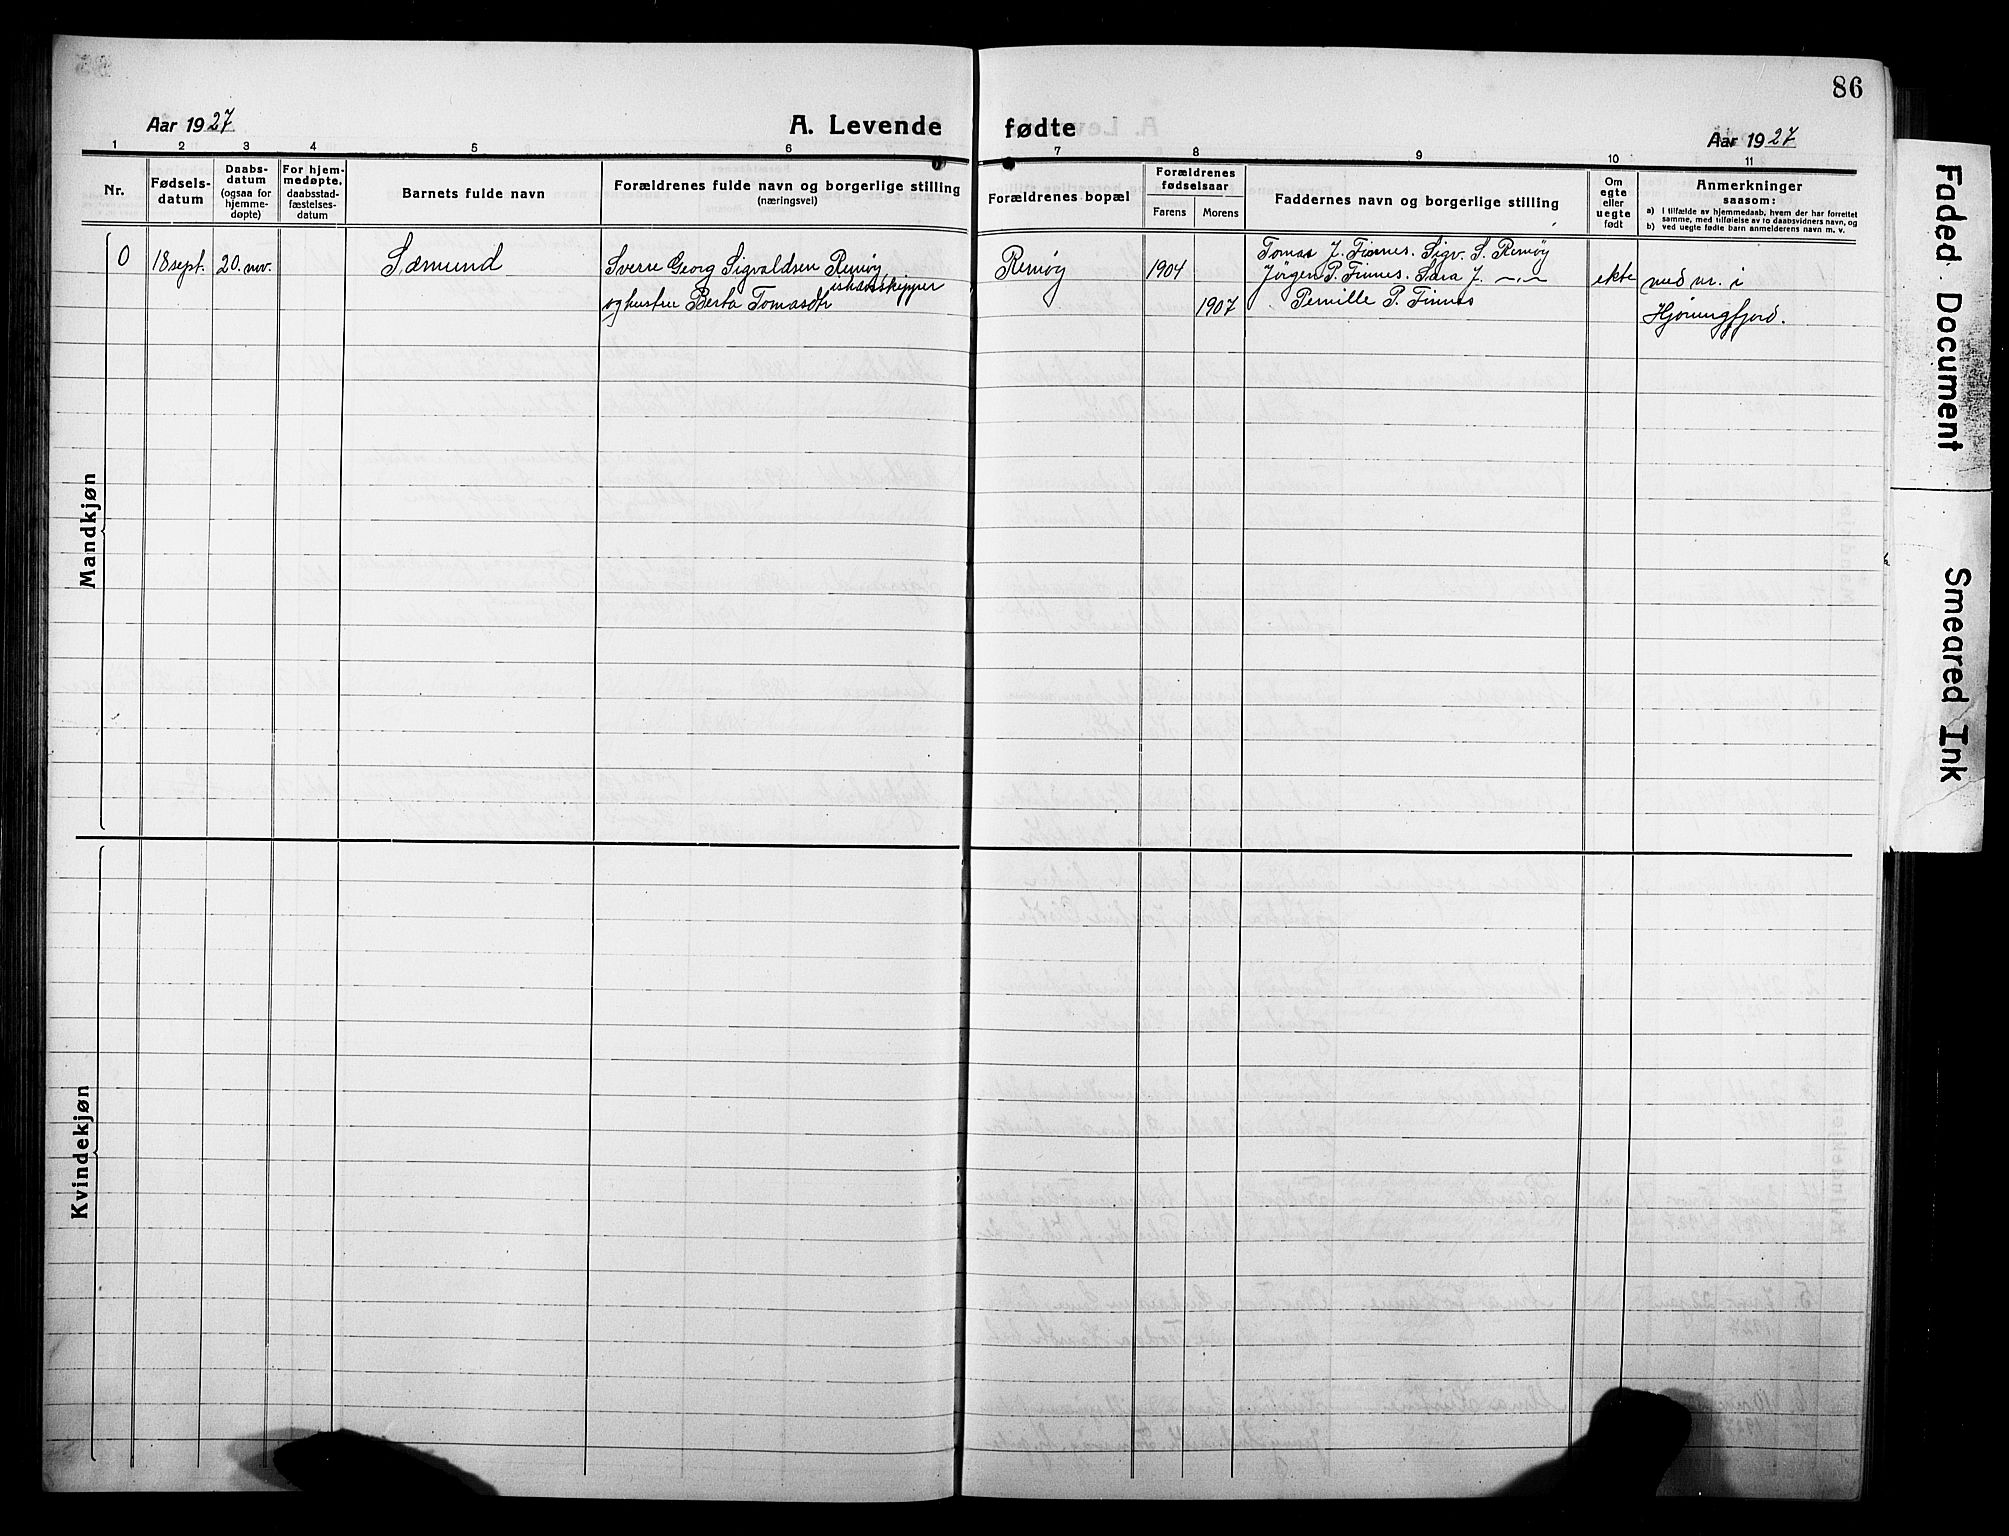 86
Aar 1927
A. Levende fødte
Aar 1927
1 2 3 4 5 6 7 8 9 10 11
Nr.
Fødsels-
datum
Daabs-
datum
(ogsaa for
hjemme-
døpte)
For hjem-
medøpte,
daabsstad-
fæstelses-
datum
Barnets fulde navn
Forældrenes fulde navn og borgerlige stilling
(næringsvei)
Forældrenes bopæl
Forældrenes
fødselsaar
Farens
Morens
Faddernes navn og borgerlige stilling
Om
egte
eller
uegte
født
Anmerkninger
saasom:
a) I tilfælde av hjemmedaab, hvem der har forrettet
samme, med tilføielse av to daabsvidners navn, og
b) ved uegte fødte barn anmelderens navn m. v.
Mandkjøn
0
18 sept.
20. nov.
Sæmund
Sverre Georg Sigvaldsen Remøy,
ishavsskipper
og hustru Berta Tomasdtr
Remøy
1904
1907
Tomas J. Finnes. Sigv. S. Remøy
Jørgen P. Finnes. Sara J. —„—
Pernille P. Finnes
ekte
med nr. i
Hjørungfjord.
Kvindekjøn
Faded Document
Smeared Ink